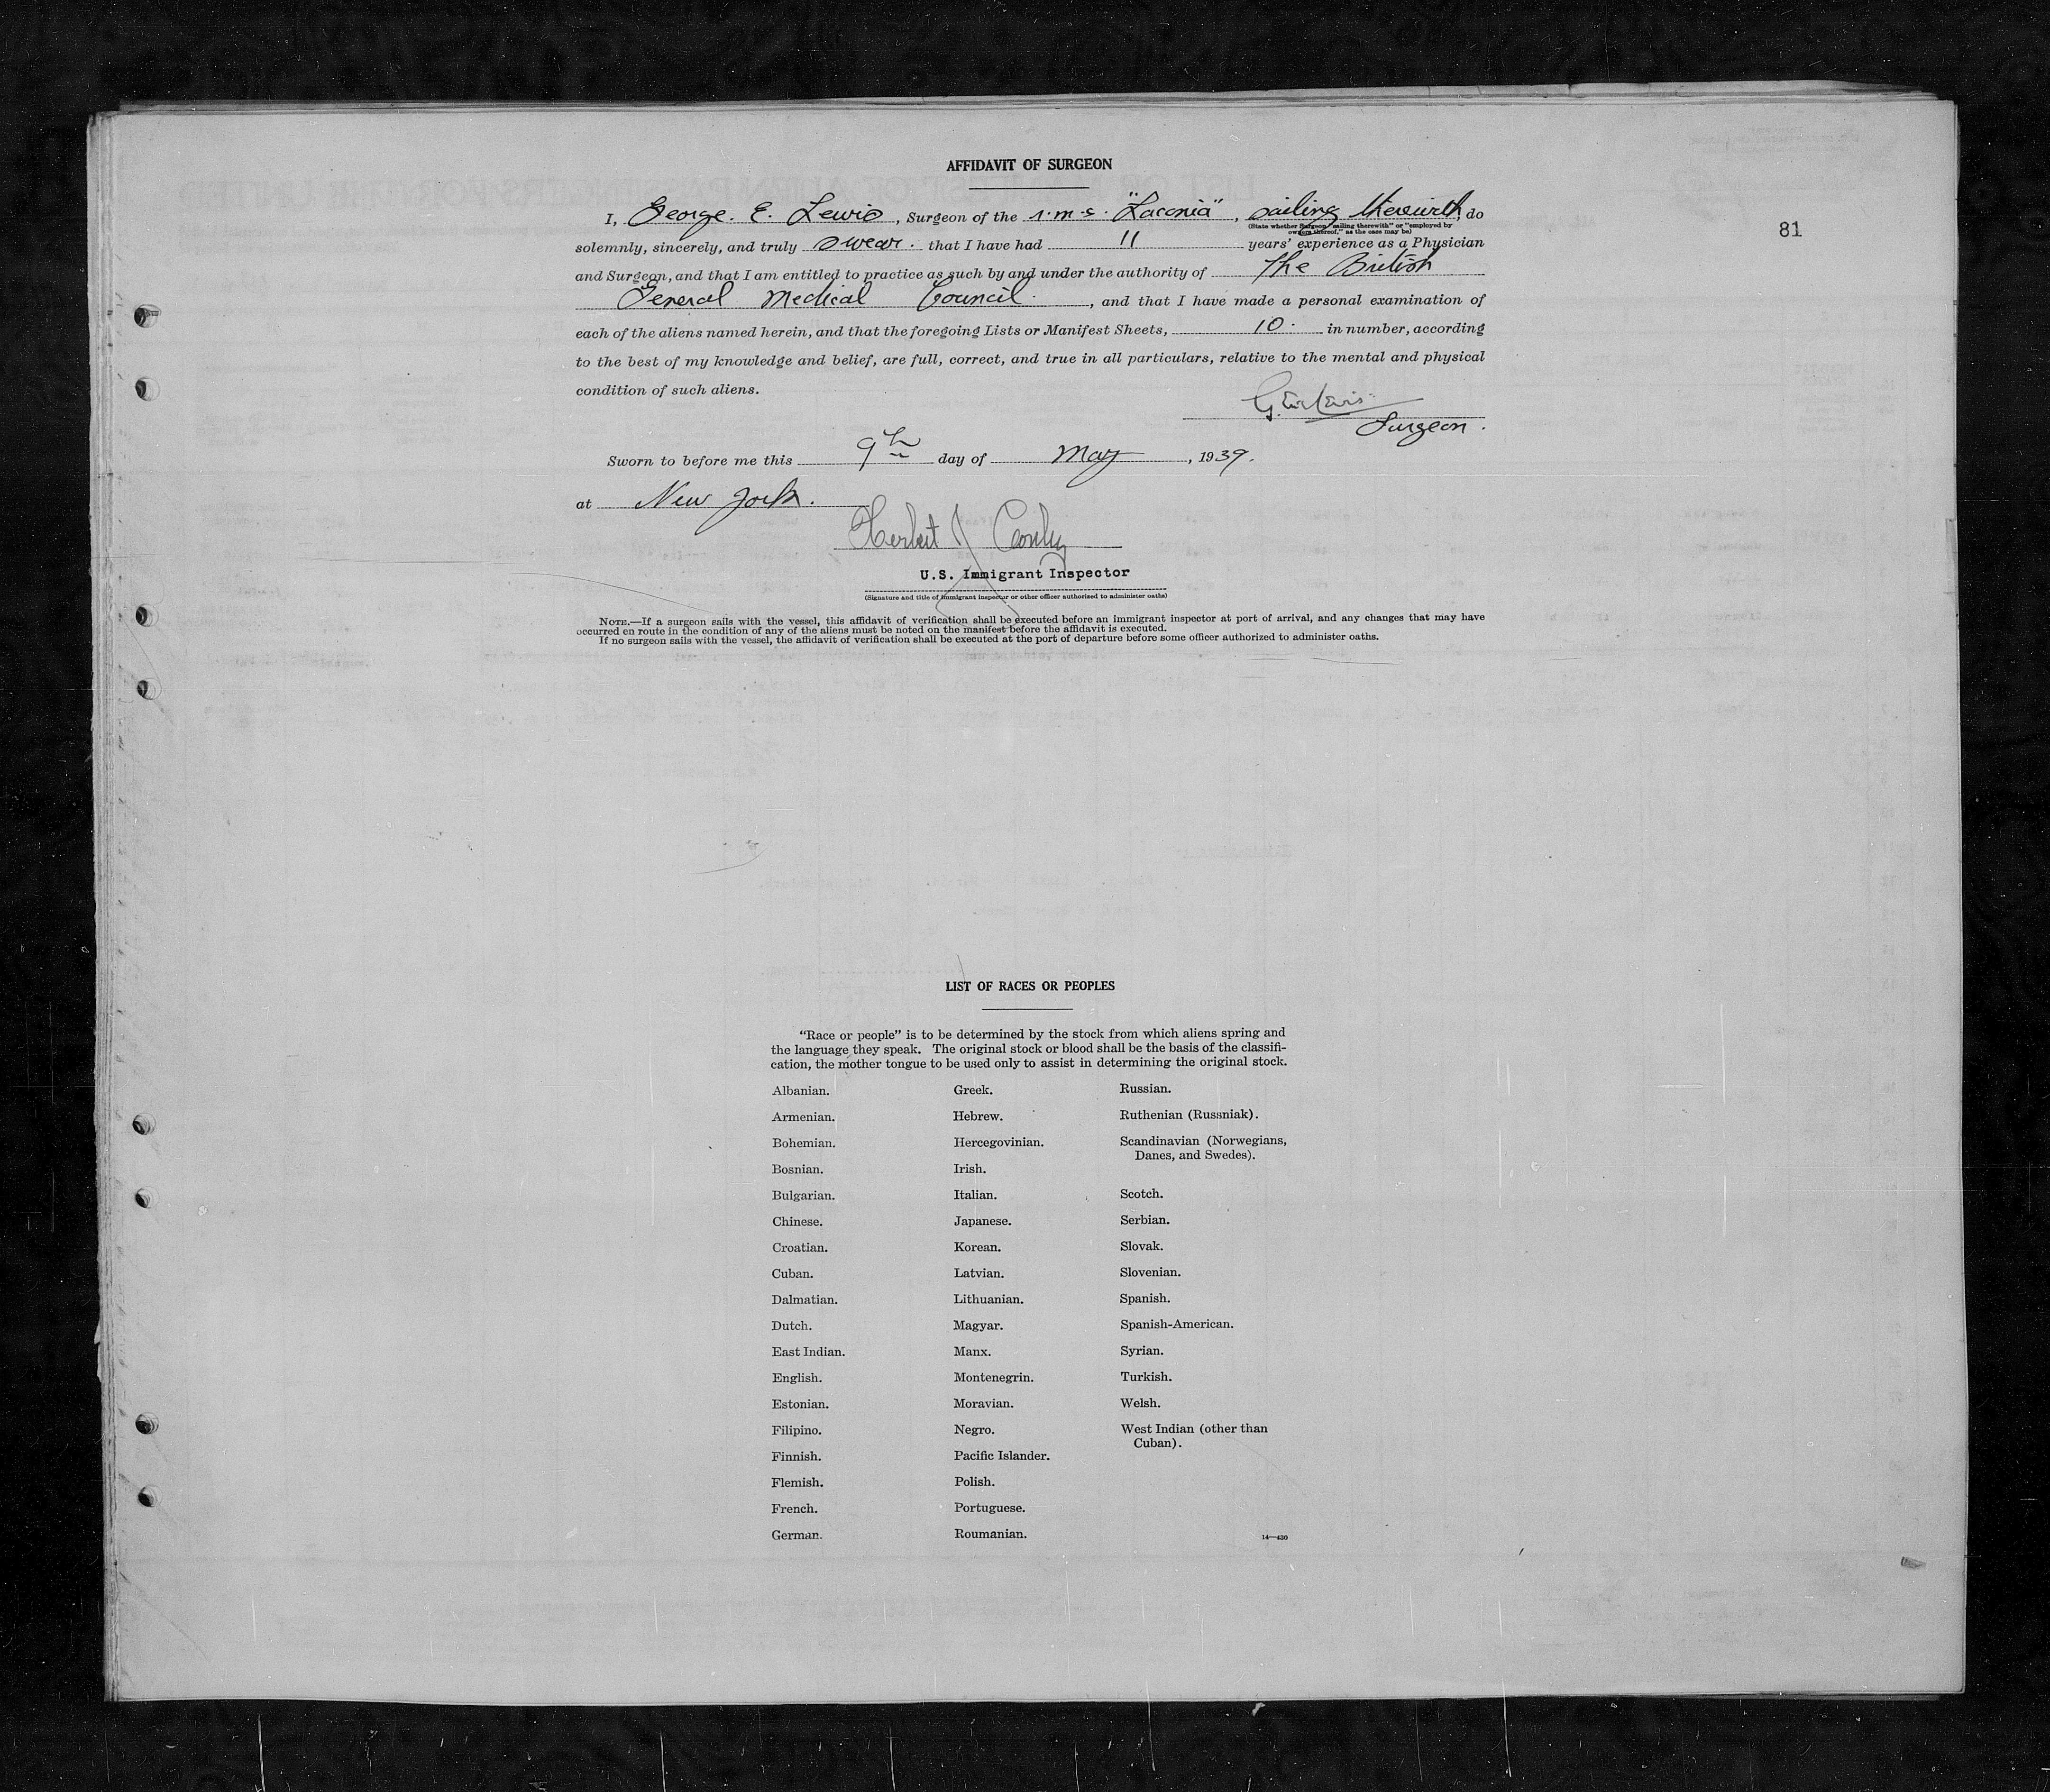 AFFIDAVIT OF SURGEON
81
I, George. E. Lewis, Surgeon of the r.m.s. "Laconia", sailing therewith, do
(State whether Surgeon "sailing therewith" or "employed by
owners thereof," as the case may be)
solemnly, sincerely, and truly swear. that I have had 11 years' experience as a Physician
and Surgeon, and that I am entitled to practice as such by and under the authority of The British
General Medical Council., and that I have made a personal examination of
each of the aliens named herein, and that the foregoing Lists or Manifest Sheets, 10. in number, according
to the best of my knowledge and belief, are full, correct, and true in all particulars, relative to the mental and physical
condition of such aliens.
G. E. Lewis.
Surgeon.
Sworn to before me this 9th day of May, 1939.
at New York.
Herbert J
U.S. Immigrant Inspector
(Signature and title of immigrant inspector or other officer authorized to administer oaths)
NOTE.—If a surgeon sails with the vessel, this affidavit of verification shall be executed before an immigrant inspector at port of arrival, and any changes that may have
occurred en route in the condition of any of the aliens must be noted on the manifest before the affidavit is executed.
If no surgeon sails with the vessel, the affidavit of verification shall be executed at the port of departure before some officer authorized to administer oaths.
LIST OF RACES OR PEOPLES
"Race or people" is to be determined by the stock from which aliens spring and
the language they speak. The original stock or blood shall be the basis of the classifi-
cation, the mother tongue to be used only to assist in determining the original stock.
Albanian.
Armenian.
Bohemian.
Bosnian.
Bulgarian.
Chinese.
Croatian.
Cuban.
Dalmatian.
Dutch.
East Indian.
English.
Estonian.
Filipino.
Finnish.
Flemish.
French.
German.
Greek.
Hebrew.
Hercegovinian.
Irish.
Italian.
Japanese.
Korean.
Latvian.
Lithuanian.
Magyar.
Manx.
Montenegrin.
Moravian.
Negro.
Pacific Islander.
Polish.
Portuguese.
Roumanian.
Russian.
Ruthenian (Russniak).
Scandinavian (Norwegians,
Danes, and Swedes).
Scotch.
Serbian.
Slovak.
Slovenian.
Spanish.
Spanish-American.
Syrian.
Turkish.
Welsh.
West Indian (other than
Cuban).
14—430